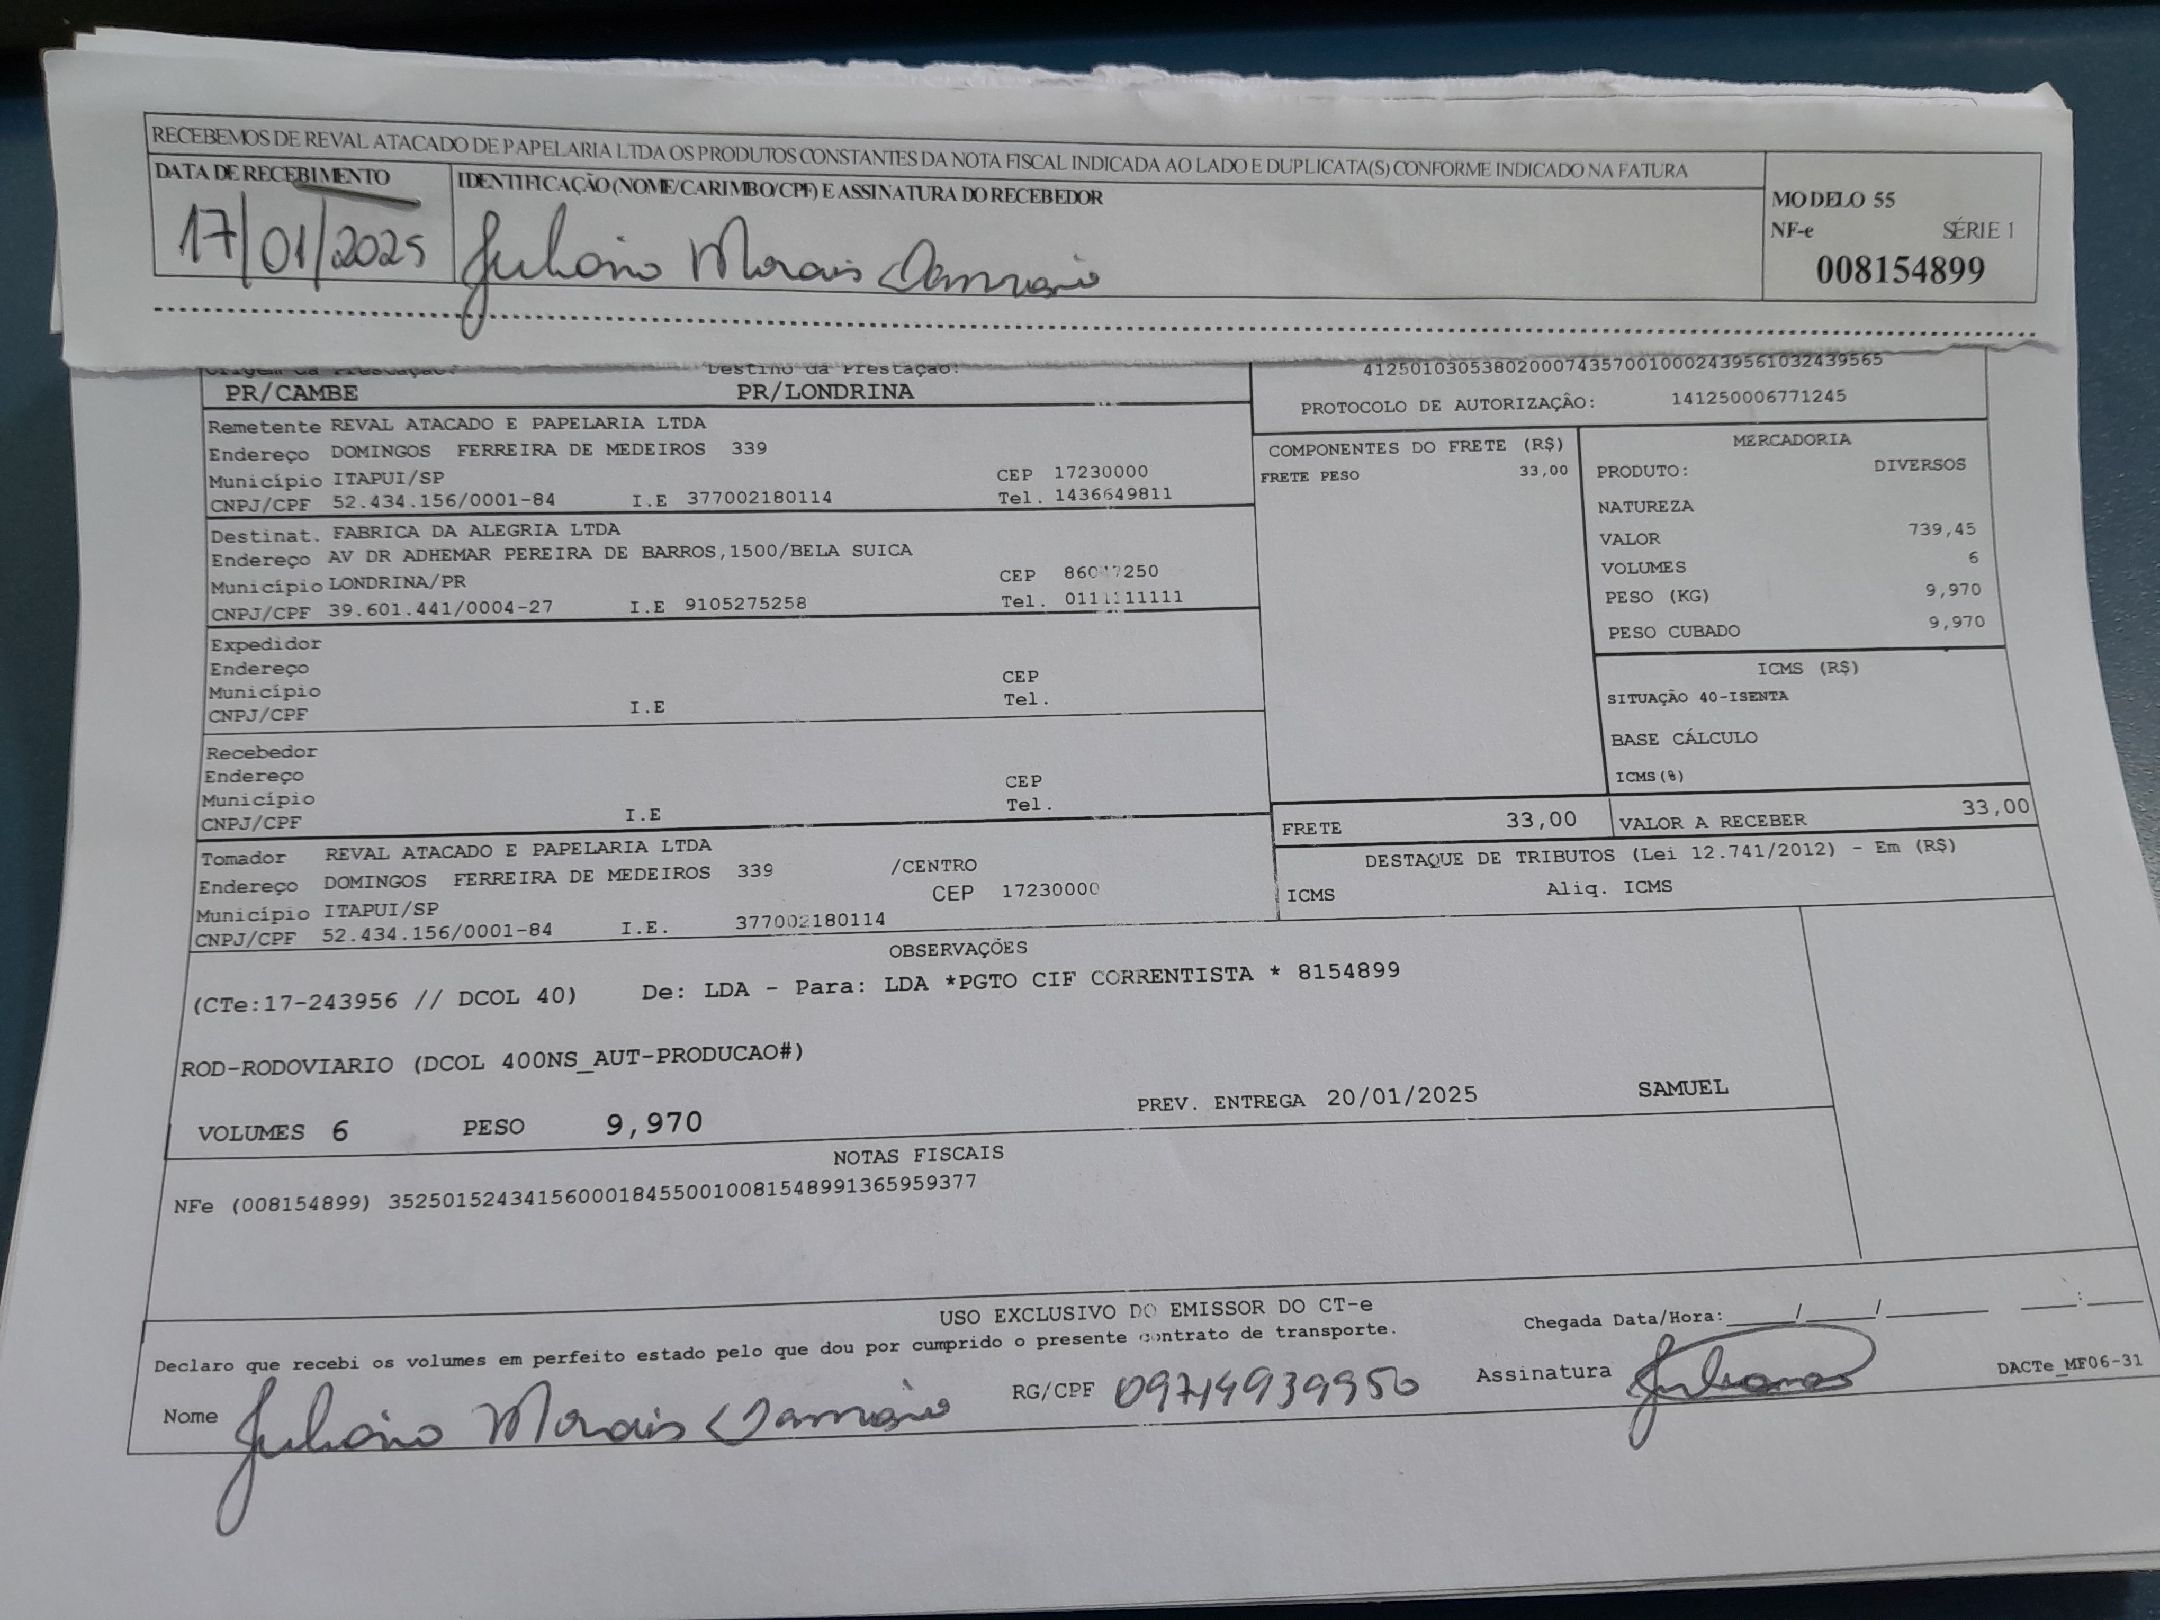 RECEBEMOS DE REVAL ATACADO DE PAPELARIA LTDA OS PRODUTOS CONSTANTES DA NOTA FISCAL INDICADA AO LADO E DUPLICATA(S) CONFORME INDICADO NA FATURA
DATA DE RECEBIMENTO
IDENTIFICAÇÃO (NOME/CARIMBO/CPF) E ASSINATURA DO RECEBEDOR
17/01/2025
MODELO 55
NF-e SÉRIE 1
008154899
Origem da Prestação: Destino da Prestação:
PR/CAMBE PR/LONDRINA
41250103053802000743570010002439561032439565
PROTOCOLO DE AUTORIZAÇÃO: 141250006771245
Remetente REVAL ATACADO E PAPELARIA LTDA
Endereço DOMINGOS FERREIRA DE MEDEIROS 339
Município ITAPUI/SP CEP 17230000
CNPJ/CPF 52.434.156/0001-84 I.E 377002180114 Tel. 1436649811
Destinat. FABRICA DA ALEGRIA LTDA
Endereço AV DR ADHEMAR PEREIRA DE BARROS,1500/BELA SUICA
Município LONDRINA/PR CEP
CNPJ/CPF 39.601.441/0004-27 I.E 9105275258 Tel. 0111111111
Expedidor
Endereço
Município CEP
CNPJ/CPF I.E Tel.
Recebedor
Endereço
Município CEP
CNPJ/CPF I.E Tel.
Tomador REVAL ATACADO E PAPELARIA LTDA
Endereço DOMINGOS FERREIRA DE MEDEIROS 339 /CENTRO
Município ITAPUI/SP CEP 17230000
CNPJ/CPF 52.434.156/0001-84 I.E. 377002180114
COMPONENTES DO FRETE (R$)
FRETE PESO 33,00
MERCADORIA
PRODUTO: DIVERSOS
NATUREZA
VALOR 739,45
VOLUMES 6
PESO (KG) 9,970
PESO CUBADO 9,970
ICMS (R$)
SITUAÇÃO 40-ISENTA
BASE CÁLCULO
ICMS(%)
FRETE 33,00 VALOR A RECEBER 33,00
DESTAQUE DE TRIBUTOS (Lei 12.741/2012) - Em (R$)
ICMS Aliq. ICMS
OBSERVAÇÕES
(CTe:17-243956 // DCOL 40) De: LDA - Para: LDA *PGTO CIF CORRENTISTA * 8154899
ROD-RODOVIARIO (DCOL 400NS_AUT-PRODUCAO#)
VOLUMES 6 PESO 9,970 PREV. ENTREGA 20/01/2025 SAMUEL
NOTAS FISCAIS
NFe (008154899) 35250152434156000184550010081548991365959377
USO EXCLUSIVO DO EMISSOR DO CT-e
Declaro que recebi os volumes em perfeito estado pelo que dou por cumprido o presente contrato de transporte.
Chegada Data/Hora: / / :
Nome
RG/CPF
Assinatura
DACTe_MF06-31